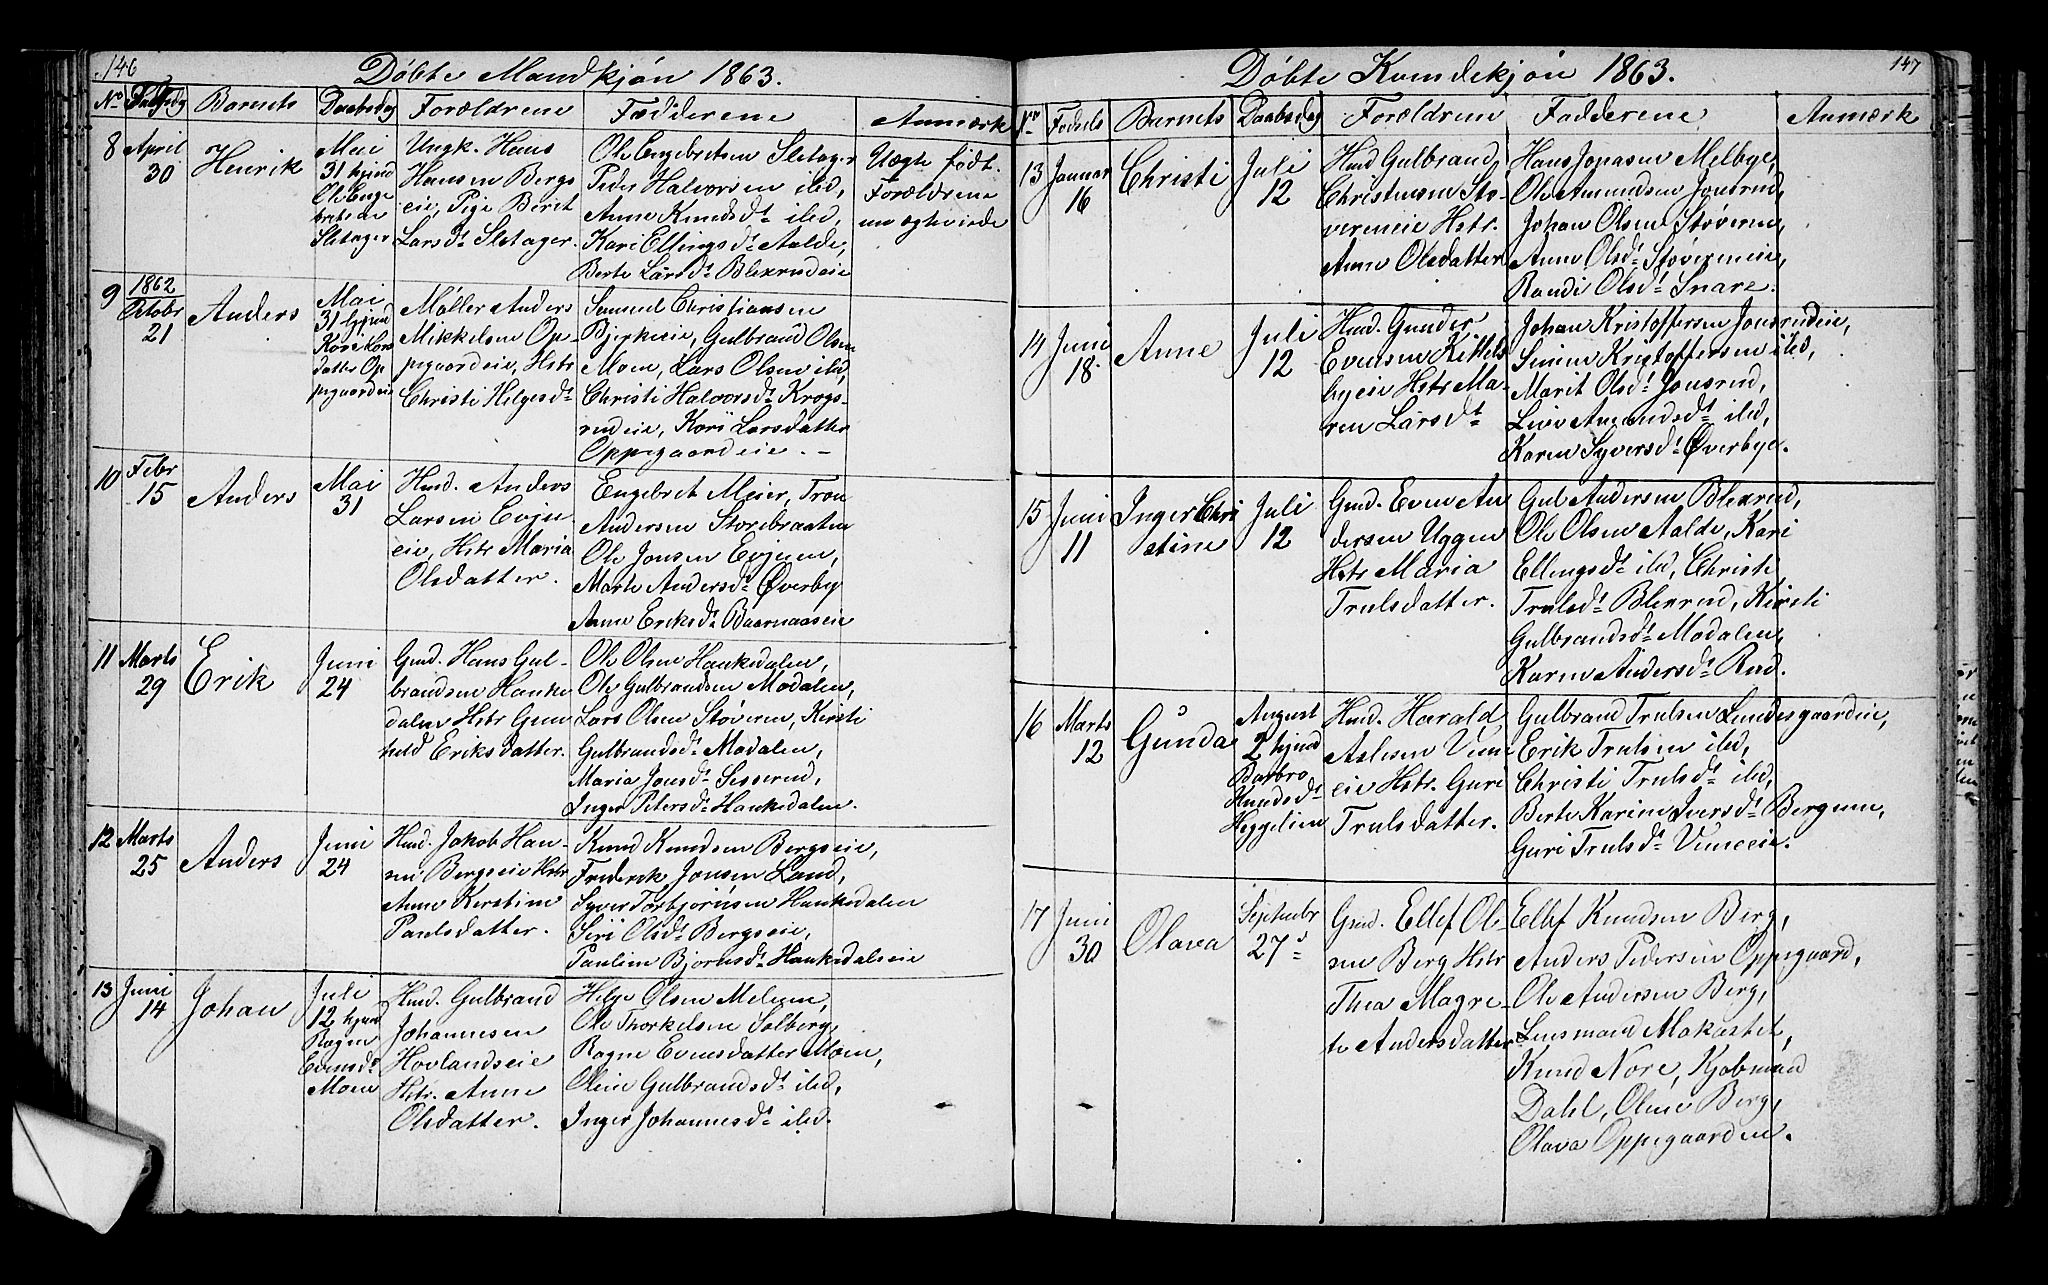 146
Döbte Mandkjön 1863.
No Födselsdg Barnets Daabsdag Forældrene Fadderene Anmærk
8 April 30
Henrik
Mai
31 hjmd
Ole Enge
bretsen
Sletager
Ungk. Hans
Hansen Bergs
eie, Pige Berit
Larsdt Sletager.
Ole Engebretsen Sletager
Peder Halvorsen ibd,
Anne Knudsdt ibd,
Kari Ellingsdt Aalde,
Berte Larsdt Blexrudeie
Uægte födt.
Forældrene
nu ægteviede
9 1862
Octobr
21
Anders
Mai
31 hjmd
Kari Lars
datter Op
pgaardeie
Möller Anders
Mikkelsen Op-
pegaardeie, Hstr
Christi Helgesdt
Samuel Christiansen
Bjerkeeie, Gulbrand Olsen
Moen, Lars Olsen ibd,
Christi Halvorsdt Krogs-
rudeie, Kari Larsdatter
Oppegaardeie. -
10 Febr
15
Anders
Mai
31
Husd. Anders
Larsen Evju
eie, Hstr Maria
Olsdatter.
Engebret Meier, Tron
Andersen Storebraaten
Ole Jonsen Evjuen,
Marte Andersdt Øverby
Anne Eriksdt Baarnaaseie
11 Marts
29
Erik
Juni
24
Gmd. Hans Gul-
brandsen Hauke
dalen Hstr Gun
hild Eriksdatter.
Ole Olsen Haukedalen,
Ole Gulbrandsen Modalen,
Lars Olsen Støveren, Kersti
Gulbrandsdt Modalen,
Maria Jonsdt Sisserud,
Inger Petersdt Haukedalen.
12 Marts
25
Anders
Juni
24
Husd. Jakob Han-
sen Bergseie Hstr
Anne Kirstine
Paulsdatter.
Knud Knudsen Bergseie,
Frederik Jonsen Lund,
Syver Torbjörnsen Haukedalen
Siri Olsdt Bergseie,
Pauline Bjornsdt Haukedalseie
13 Juni
14
Johan
Juli
12 hjmd
Ragne
Evensdt
Moen
Husd. Gulbrand
Johannesen
Hovlandseie
Hstr. Anne
Olsdatter.
Helge Olsen Meleen,
Ole Thorkelsen Solberg,
Ragne Evensdatter Moen,
Oline Gulbrandsdt ibd,
Inger Johannesdt ibd.
147
Döbte Kvindekjön 1863.
No Födsels Barnets Daabsdag Forældren Fadderene Anmærk
13 Januar
16
Christi
Juli
12
Husd Gulbrand
Christensen Stö-
vereneie Hstr.
Anne Olsdatter
Hans Jonasen Melbye,
Ole Amundsen Jonsrud,
Johan Olsen Støveren,
Anne Olsdt Støvereneie,
Randi Olsdt Snare.
14 Juni
18.
Anne
Juli
12
Husd. Gunder
Evensen Kittels
byeie Hstr Ma-
ren Larsdt
Johan Kristoffersen Jonsrudeie,
Simen Kristoffersen ibd,
Marit Olsdt Jonsrud,
Live Amundsdt ibd,
Karen Syversdt Øverbye.
15 Juni
11
Inger Chri
stine
Juli
12
Gmd. Even An
dersen Uggen
Hstr Maria
Trulsdatter.
Gul Andersen Blexrud,
Ole Olsen Aalde, Kari
Ellingsdt ibd, Christi
Trulsdt Blexrud, Kersti
Gulbrandsdt Modalen,
Karen Andersdt Rud.
16 Marts
12
Gunda
August
2 hjmd
Barbro
Knudsdt
Heggelien
Husd. Harald
Aslesen Vime
eie Hstr. Guri
Trulsdatter.
Gulbrand Trulsen Lundesgaardeie,
Erik Trulsen ibd,
Christi Trulsdt ibd,
Berte Karine Iversdt Bergum,
Guri Trulsdt Vimeeie.
17 Juni
30
Olava
Septembr
27d
Gmd. Ellef Ol-
sen Berg Hstr
Thea Magre-
te Andersdatter
Ellef Knudsen Berg,
Anders Pedersen Oppegaard,
Ole Andersen Berg,
Lensmand Makastet,
Knud Nore, Kjobmand
Dahl, Oline Berg,
Olava Oppegaarden.